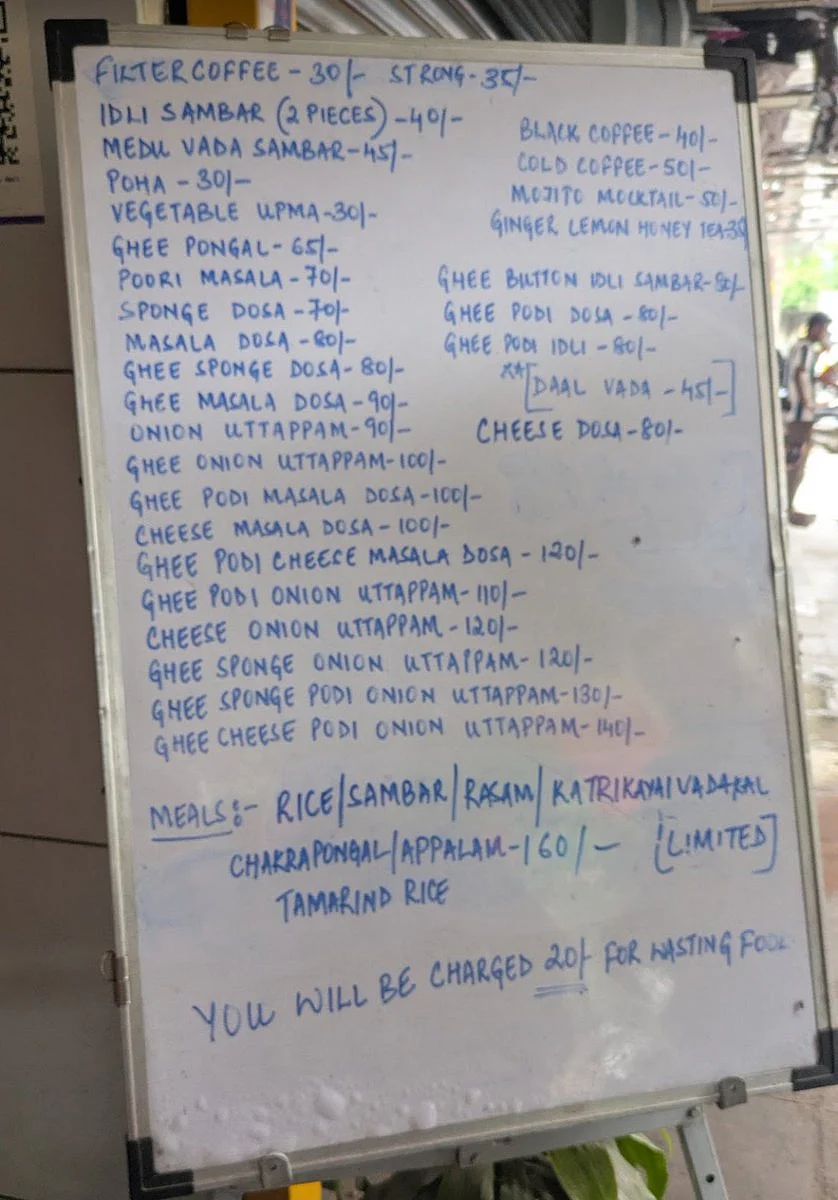 FILTER COFFEE - 30/- STRONG - 35/-
IDLI SAMBAR (2 PIECES) - 40/-
MEDU VADA SAMBAR - 45/-
POHA - 30/-
VEGETABLE UPMA - 30/-
GHEE PONGAL - 65/-
POORI MASALA - 70/-
SPONGE DOSA - 70/-
MASALA DOSA - 80/-
GHEE SPONGE DOSA - 80/-
GHEE MASALA DOSA - 90/-
ONION UTTAPPAM - 90/-
GHEE ONION UTTAPPAM - 100/-
GHEE PODI MASALA DOSA - 100/-
CHEESE MASALA DOSA - 100/-
GHEE PODI CHEESE MASALA DOSA - 120/-
GHEE PODI ONION UTTAPPAM - 110/-
CHEESE ONION UTTAPPAM - 120/-
GHEE SPONGE ONION UTTAPPAM - 120/-
GHEE SPONGE PODI ONION UTTAPPAM - 130/-
GHEE CHEESE PODI ONION UTTAPPAM - 140/-
BLACK COFFEE - 40/-
COLD COFFEE - 50/-
MOJITO MOCKTAIL - 50/-
GINGER LEMON HONEY TEA -
GHEE BUTTON IDLI SAMBAR - 80/-
GHEE PODI DOSA - 80/-
GHEE PODI IDLI - 80/-
** [DAAL VADA - 45/-]
CHEESE DOSA - 80/-
MEALS :- RICE/SAMBAR/RASAM/KATRIKAYAI VADAKAL
CHAKRAPONGAL/APPALAM - 160/- [LIMITED]
TAMARIND RICE
YOU WILL BE CHARGED 20/- FOR WASTING FOOD